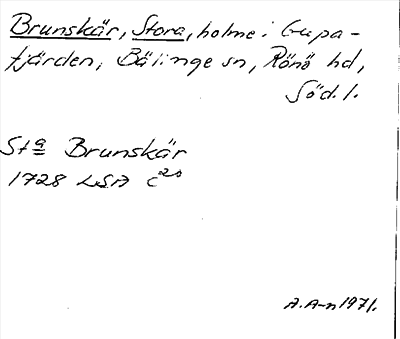 Brunskär, Stora, holme i Gupa-
fjärden, Bälinge sn, Rönö hd,
Söd. l.
Sta Brunskär
1728 LSA C20
A. A-n 1971.